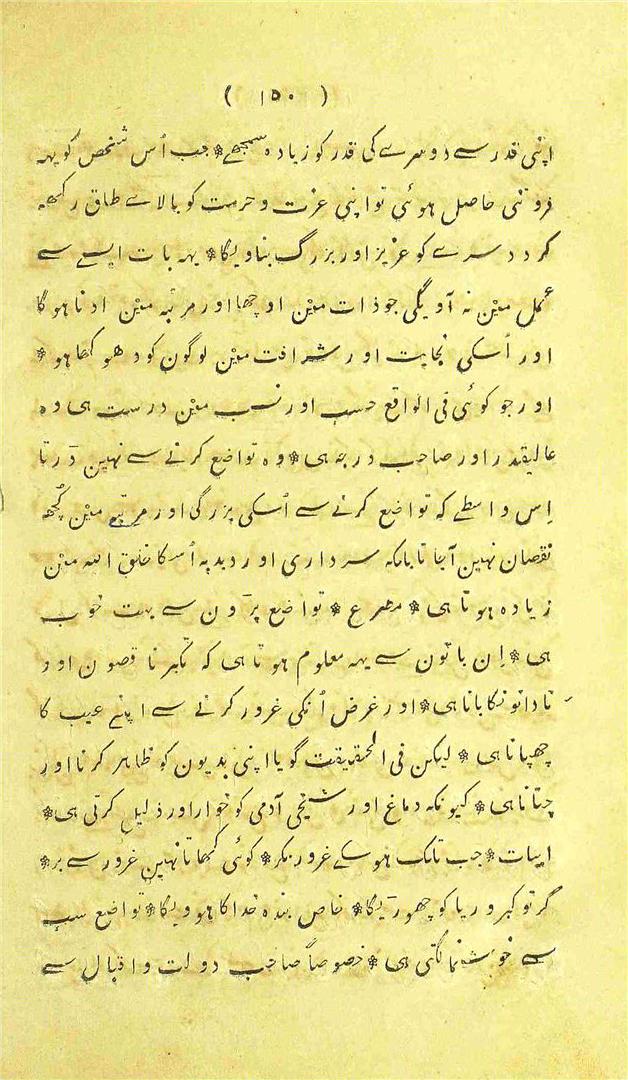 ( ۱۵۰ )
اپنی قدر سے دوسرے کی قدر کو زیادہ سمجھے * جب اُس شخص کو یہہ
فروتنی حاصل ہوئی تو اپنی عزت و حرمت کو بالاے طاق رکھہ
کر دوسرے کو عزیز اور بزرگ بناویگا * یہہ بات ایسے سے
عمل مین نہ آویگی جو ذات مین اوچھا اور مرتبہ مین ادنا ہوگا
اور اُسکی نجابت اور شرافت مین لوگون کو دھوکھا ہو *
اور جو کوئی فی الواقع حسب اور نسب مین درست ہی وہ
عالیقدر اور صاحب درجہ ہی * وہ تواضع کرنے سے نہین ڈرتا
اِس واسطے کہ تواضع کرنے سے اُسکی بزرگی اور مرتبے مین کُچھہ
نقصان نہین آجاتا بلکہ سرداری اور دبدبہ اُسکا خلق اللہ مین
زیادہ ہوتا ہی * مصرع * تواضع بڑون سے بہت خوب
ہی * اِن باتون سے یہہ معلوم ہوتا ہی کہ تکبر ناقصون اور
نادانونکا بانا ہی * اور غرض اُنکی غرور کرنے سے اپنے عیب کا
چھپانا ہی * لیکن فی الحقیقت گویا اپنی بدیون کو ظاہر کرنا اور
جتانا ہی * کیونکہ دماغ اور شیخی آدمی کو خوار اور ذلیل کرتی ہی *
ابیات * جب تلک ہوسکے غرور نکر * کوئی کھاتا نہین غرور سے بر *
گر تو کبر و ریا کو چھوڑیگا * خاص بندہ خدا کا ہوویگا * تواضع سب
سے خوشنما لگتی ہی * خصوصاً صاحب دولت و اقبال سے